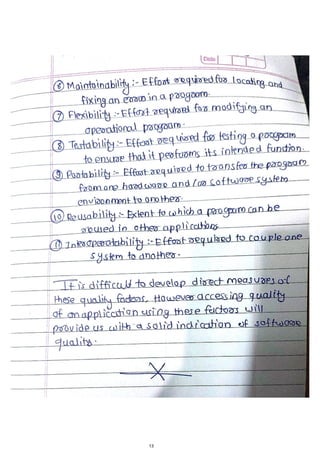 Date
⑥ Maintainability :- Effort required for locating and
fixing an error in a program.
⑦ Flexibility :- Effort required for modifying an
operational program.
⑧ Testability :- Effort required for testing a program
to ensure that it performs its intended function.
⑨ Portability :- Effort required to transfer the program
from one hardware and/or software system
environment to another.
⑩ Reusability :- Extent to which a program can be
reused in other applications
⑪ Interoperatability :- Effort required to couple one
system to another.
It is difficult to develop direct measures of
these quality factors, However accessing quality
of an application using these factors will
provide us with a solid indication of software
quality.
13